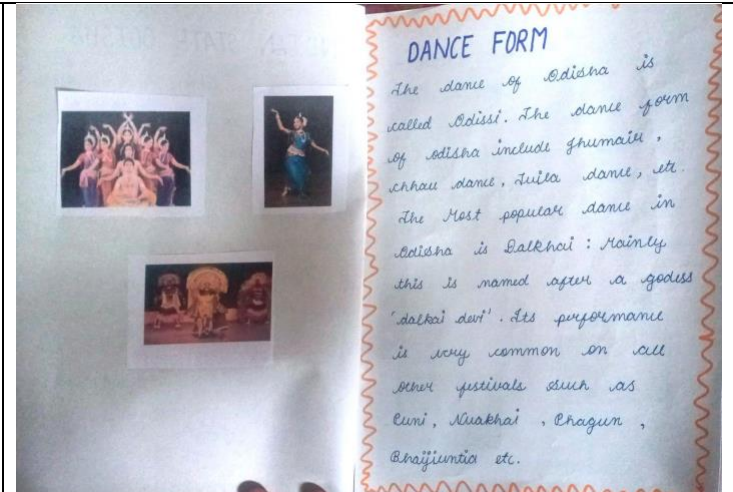 DANCE FORM
The dance of Odisha is
called Odissi. The dance form
of odisha include ghumair,
chhau dance, dance, etc.
The Most popular dance in
Odisha is Dalkhai : Mainly
this is named after a godess
'dalkai devi'. Its performance
is very common on all
other festivals such as
Nuakhai , Chagun ,
Bhaijiuntia etc.